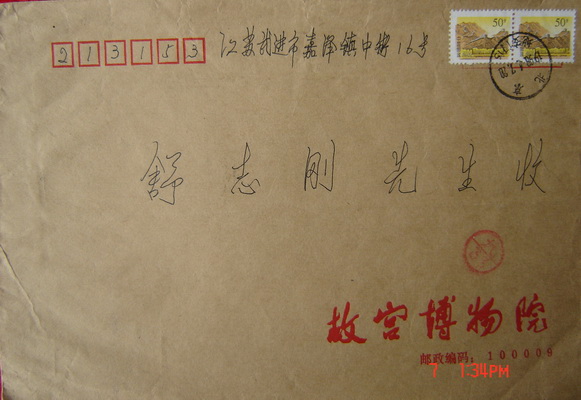 213153 江苏武进市嘉泽镇中街16号
50分 50分
北京
舒志刚先生收
故宫博物院
邮政编码：100009
7 1:34PM